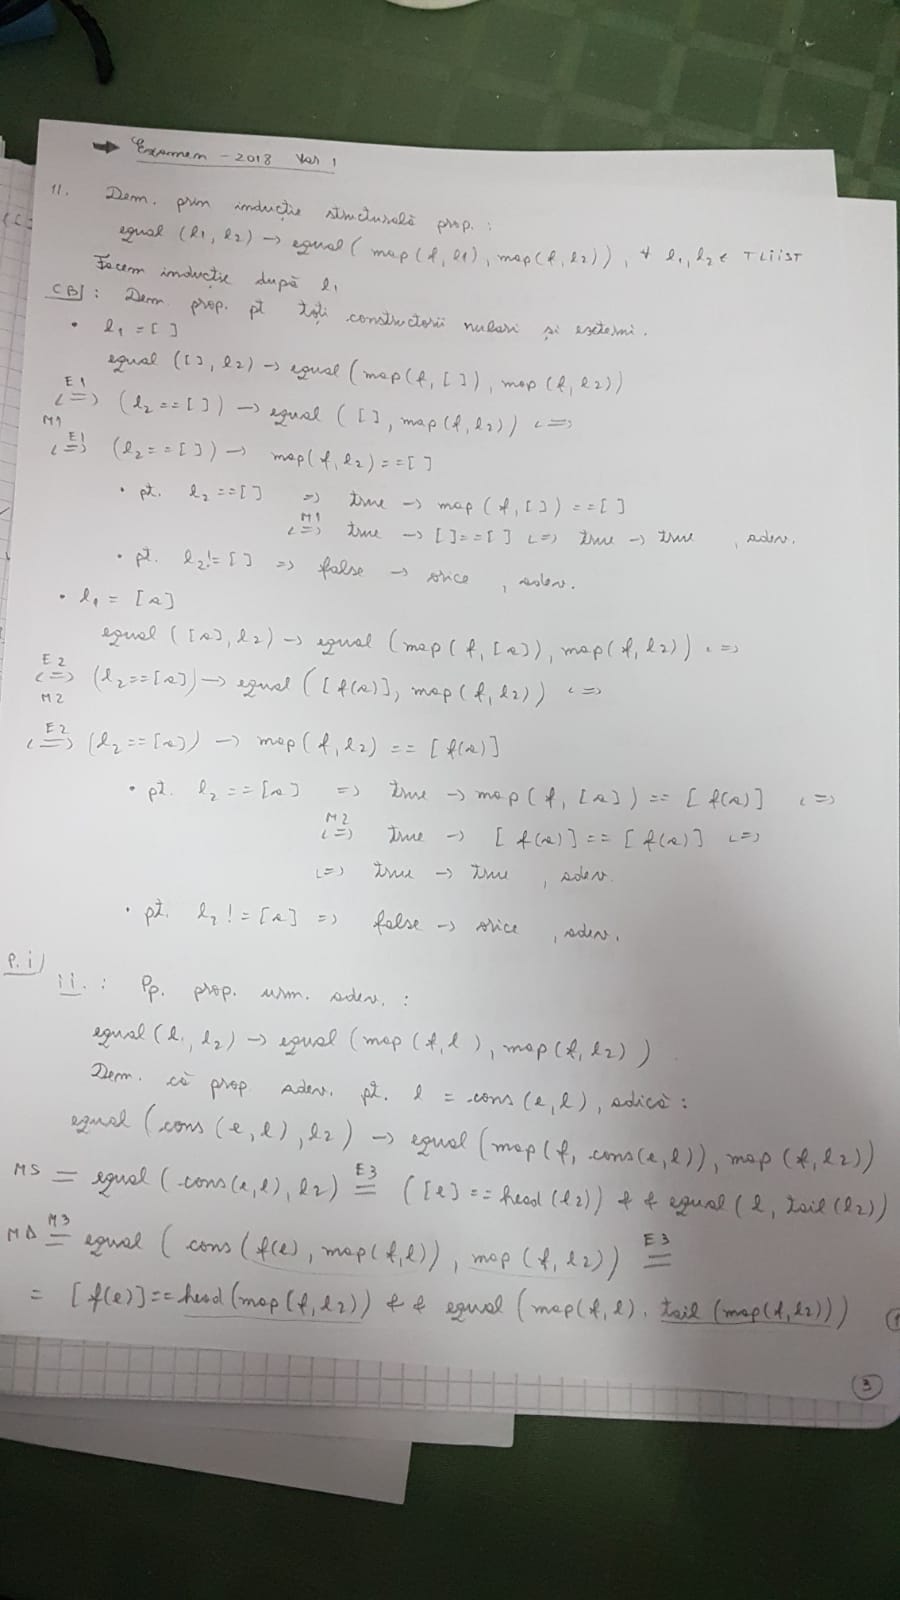 → Examen - 2018 Var 1
11. Dem. prin inducție structurală prop. :
equal (l1, l2) → equal ( map (f, l1) , map (f, l2)) , ∀ l1, l2 ∈ TLiIST
Facem inducție după l1
CB : Dem. prop. pt toți constructorii nulari și externi.
• l1 = [ ]
equal ([ ], l2) → equal (map (f, [ ]) , map (f, l2))
<=> E1 M1 (l2 == [ ]) → equal ([ ], map (f, l2)) <=>
<=> E1 (l2 == [ ]) → map (f, l2) == [ ]
• pt. l2 == [ ] => true → map (f, [ ]) == [ ]
<=> M1 true → [ ] == [ ] <=> true → true , adev.
• pt. l2 != [ ] => false → orice , adev.
• l1 = [a]
equal ([a], l2) → equal (map (f, [a]), map (f, l2)) <=>
<=> E2 M2 (l2 == [a]) → equal ([f(a)], map (f, l2)) <=>
<=> E2 (l2 == [a]) → map (f, l2) == [f(a)]
• pt. l2 == [a] => true → map (f, [a]) == [f(a)] <=>
<=> M2 true → [f(a)] == [f(a)] <=>
<=> true → true , adev.
• pt. l2 != [a] => false → orice , adev.
P.i)
ii. : Pp. prop. urm. adev. :
equal (l, l2) → equal (map (f, l), map (f, l2))
Dem. că prop. adev. pt. l = cons (e, l) , adică :
equal (cons (e, l), l2) → equal (map (f, cons(e, l)), map (f, l2))
MS = equal (cons(e, l), l2) E3 = ([e] == head (l2)) && equal (l, tail (l2))
MD M3 = equal ( cons (f(e), map (f, l)) , map (f, l2)) E3 =
= [f(e)] == head (map (f, l2)) && equal (map (f, l), tail (map (f, l2)))
3